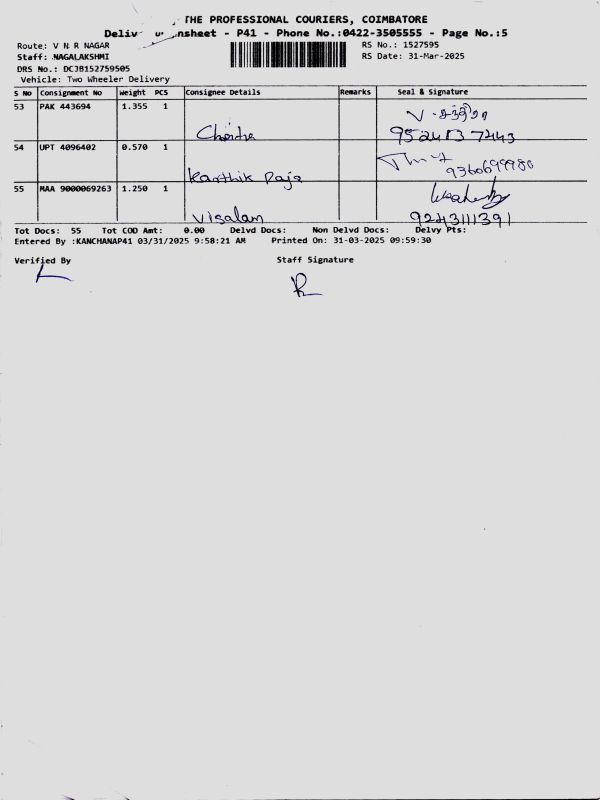 THE PROFESSIONAL COURIERS, COIMBATORE
- P41 - Phone No.:0422-3505555 - Page No.:5
Route: V N R NAGAR
RS No.: 1527595
Staff: NAGALAKSHMI
RS Date: 31-Mar-2025
DRS No.: DCJB152759505
Vehicle: Two Wheeler Delivery
S No Consignment No Weight PCS Consignee Details Remarks Seal & Signature
53 PAK 443694 1.355 1
54 UPT 4096402 0.570 1
9360699980
Karthik Raja
55 MAA 9000069263 1.250 1
Visalam 9243111391
Tot Docs: 55 Tot COD Amt: 0.00 Delvd Docs: Non Delvd Docs: Delvy Pts:
Entered By :KANCHANAP41 03/31/2025 9:58:21 AM Printed On: 31-03-2025 09:59:30
Verified By Staff Signature